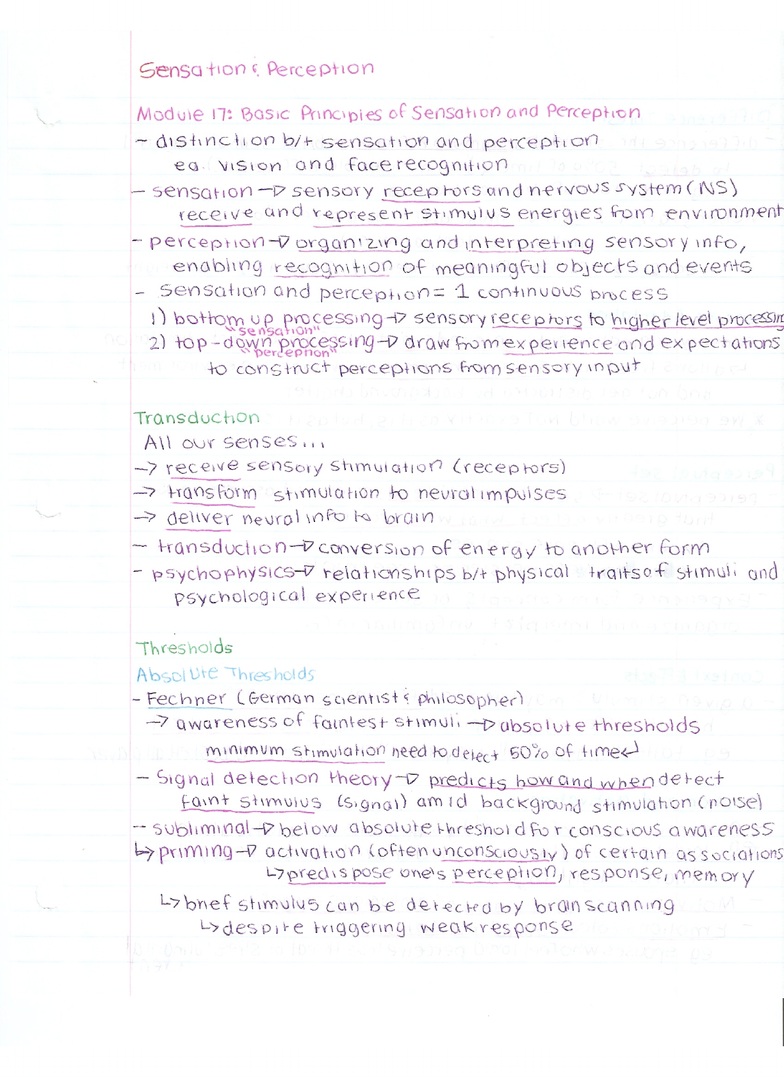 Sensation & Perception
Module 17: Basic Principles of Sensation and Perception
- distinction b/t sensation and perception
eg. vision and face recognition
- sensation → sensory receptors and nervous system (NS)
receive and represent stimulus energies from environment
- perception → organizing and interpreting sensory info,
enabling recognition of meaningful objects and events
- Sensation and perception = 1 continuous process
1) bottom up processing → sensory receptors to higher level processing
"sensation"
2) top-down processing → draw from experience and expectations
"perception"
to construct perceptions from sensory input
Transduction
All our senses...
→ receive sensory stimulation (receptors)
→ transform stimulation to neural impulses
→ deliver neural info to brain
- transduction → conversion of energy to another form
- psychophysics → relationships b/t physical traits of stimuli and
psychological experience
Thresholds
Absolute Thresholds
- Fechner (German scientist & philosopher)
→ awareness of faintest stimuli → absolute thresholds
minimum stimulation need to detect 50% of time ↵
- Signal detection theory → predicts how and when detect
faint stimulus (signal) amid background stimulation (noise)
- subliminal → below absolute threshold for conscious awareness
↳ priming → activation (often unconsciously) of certain associations
↳ predispose one's perception, response, memory
↳ brief stimulus can be detected by brain scanning
↳ despite triggering weak response